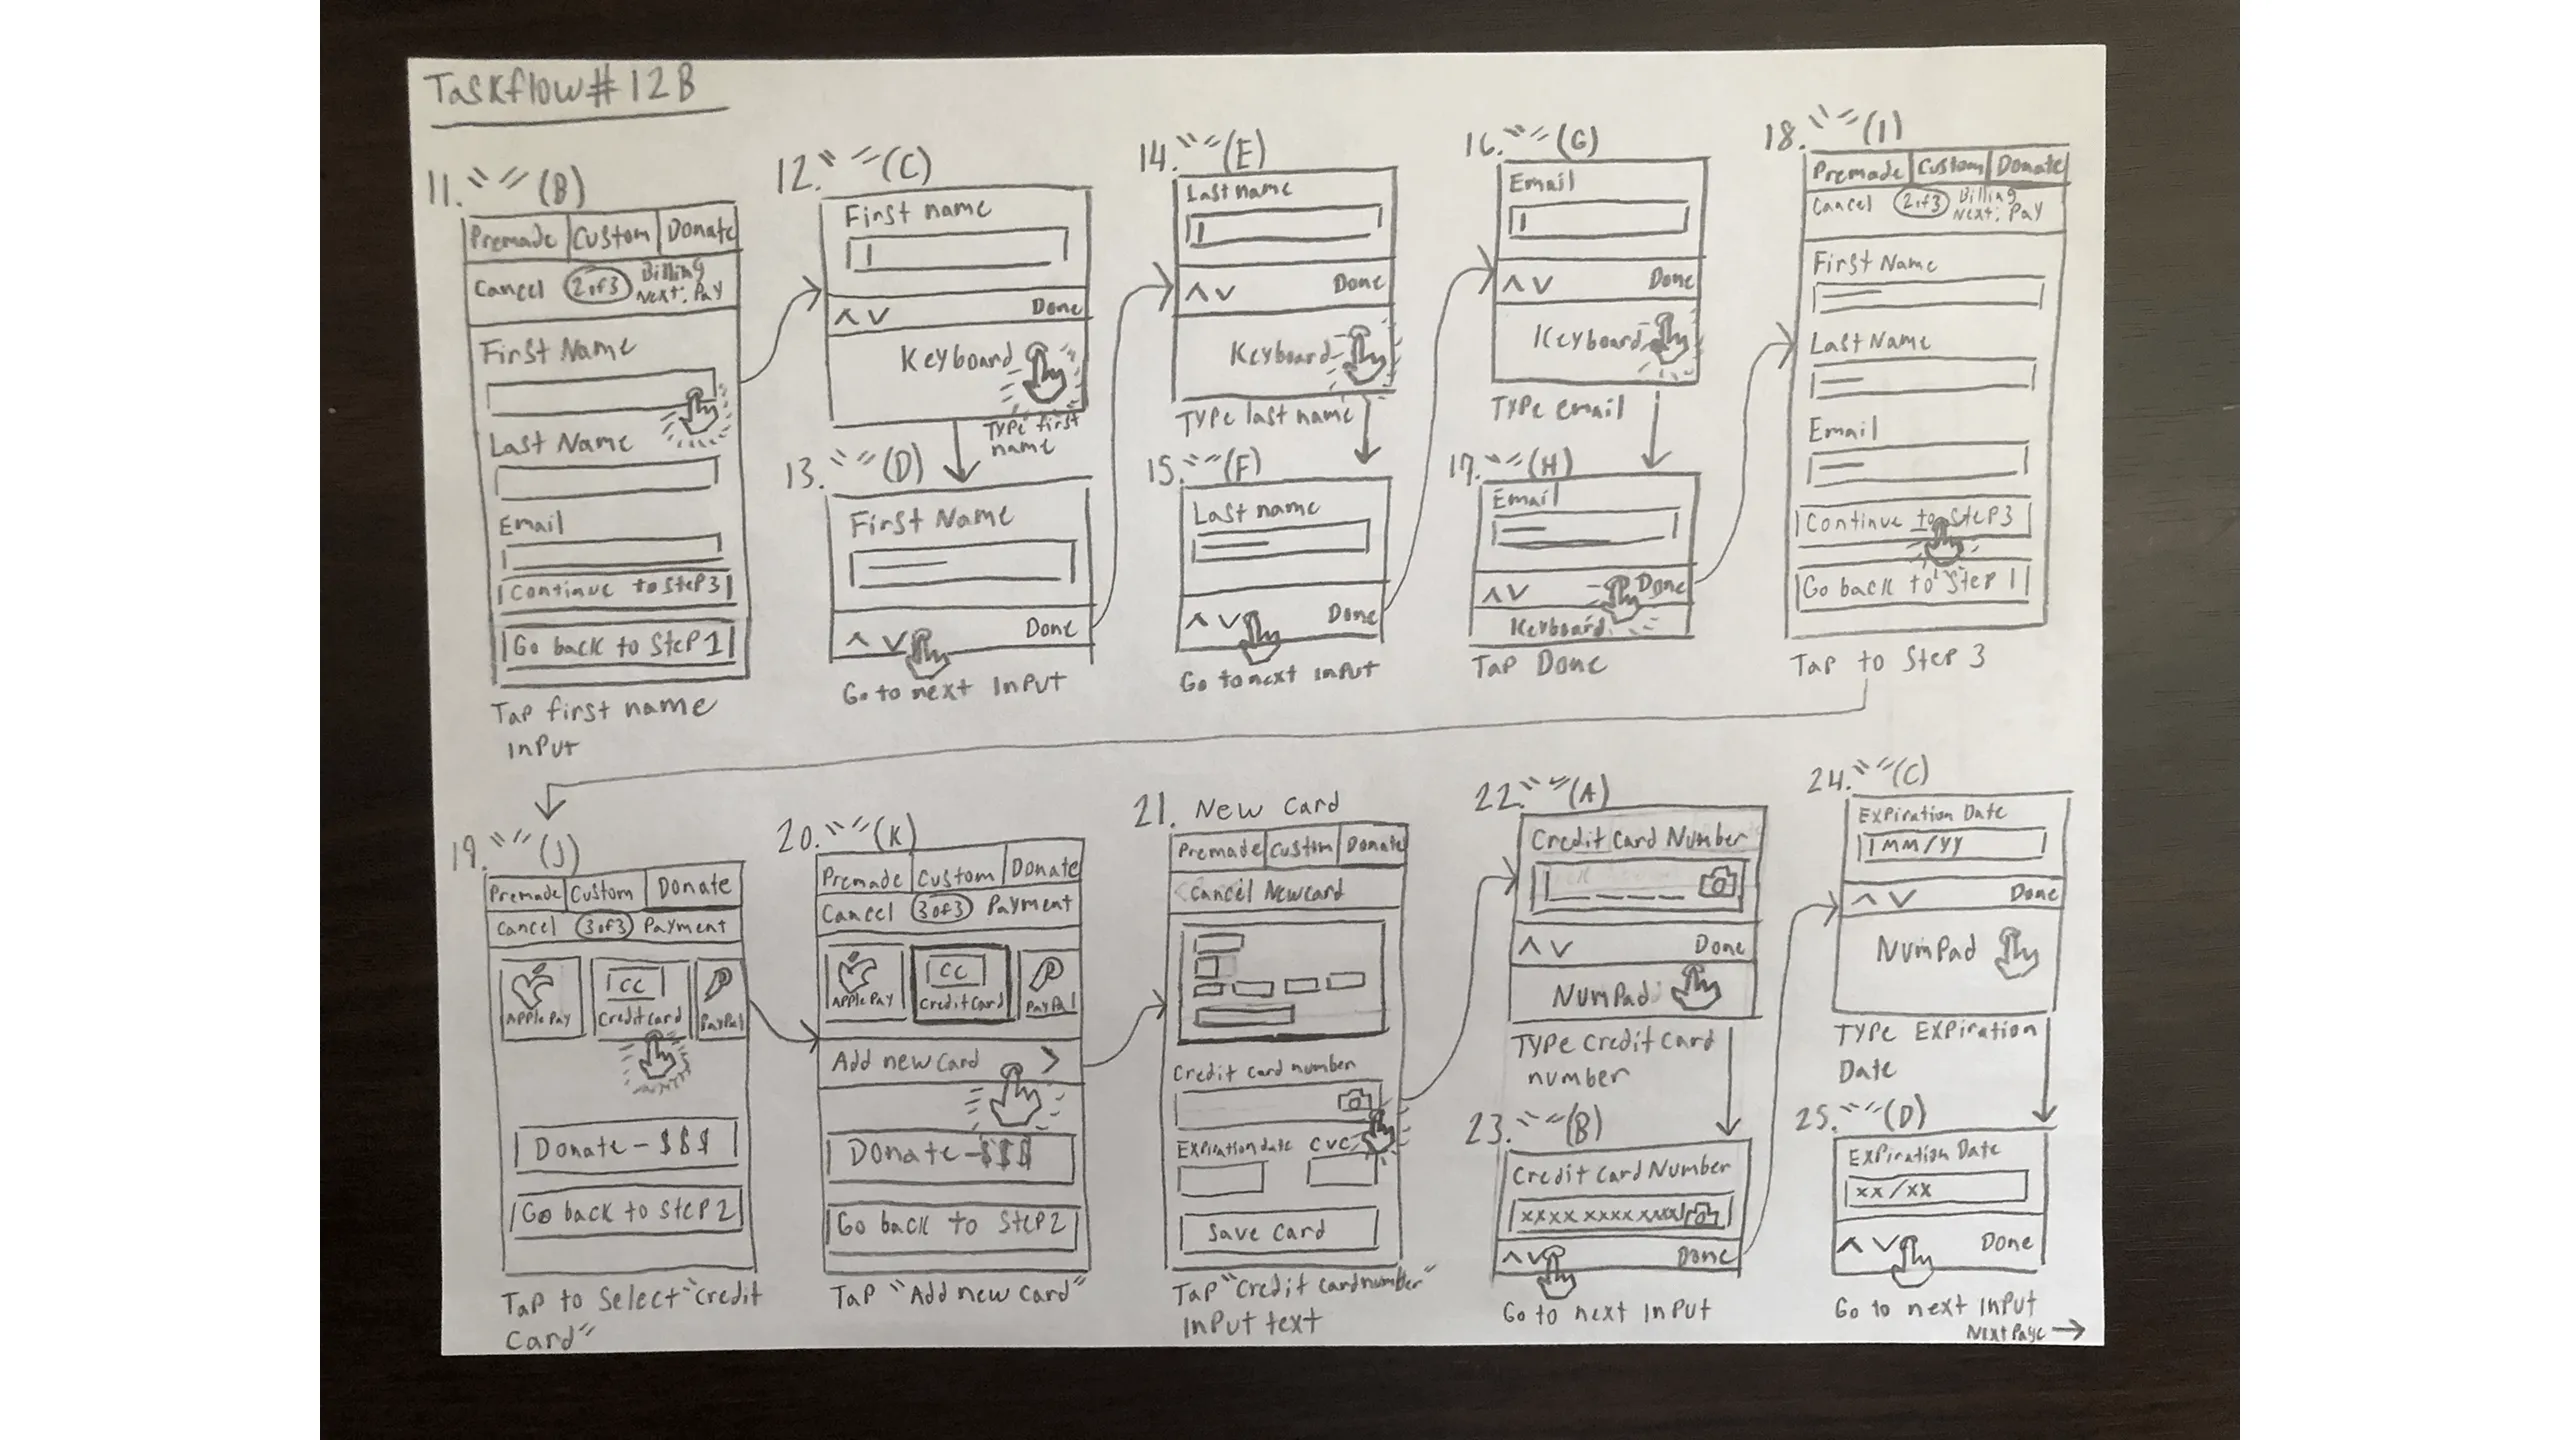 Taskflow#12B
11. "" (B)
Premade Custom Donate
Cancel 2of3 Billing
Next: Pay
First Name
Last Name
Email
Continue to Step3
Go back to Step 1
Tap first name
input
12. "" (C)
First name
Done
Keyboard
Type first
name
13. "" (D)
First Name
Done
Go to next input
14. "" (E)
Last name
Done
Keyboard
Type last name
15. "" (F)
Last name
Done
Go to next input
16. "" (G)
Email
Done
Keyboard
Type email
17. "" (H)
Email
Done
Keyboard
Tap Done
18. "" (I)
Premade Custom Donate
Cancel 2of3 Billing
Next: Pay
First Name
Last Name
Email
Continue to Step3
Go back to Step 1
Tap to Step 3
19. "" (J)
Premade Custom Donate
Cancel 3of3 Payment
CC
Apple Pay Credit Card PayPal
Donate - $$$
Go back to Step 2
Tap to Select "Credit
Card"
20. "" (K)
Premade Custom Donate
Cancel 3of3 Payment
CC
Apple Pay Credit Card PayPal
Add new card >
Donate - $$$
Go back to Step 2
Tap "Add new card"
21. New Card
Premade Custom Donate
Cancel New card
Credit card number
Expiration date CVC
Save Card
Tap "Credit card number"
input text
22. "" (A)
Credit Card Number
Done
NumPad
Type credit card
number
23. "" (B)
Credit Card Number
xxxx xxxx xxxx
Done
Go to next input
24. "" (C)
Expiration Date
MM/YY
Done
NumPad
Type Expiration
Date
25. "" (D)
Expiration Date
xx/xx
Done
Go to next input
Next Page →